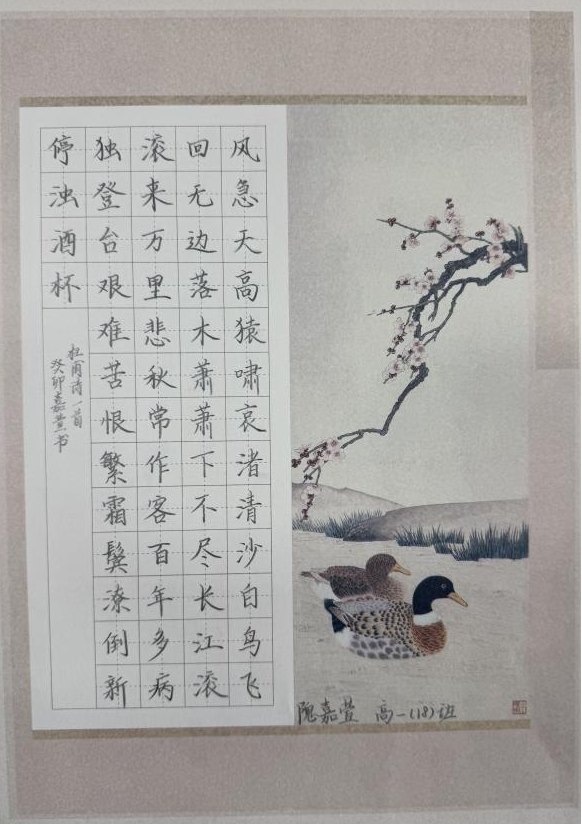 风急天高猿啸哀渚清沙白鸟飞
回无边落木萧萧下不尽长江滚
滚来万里悲秋常作客百年多病
独登台艰难苦恨繁霜鬓潦倒新
停浊酒杯
杜甫诗一首
癸卯嘉萱书
隗嘉萱 高一(18)班